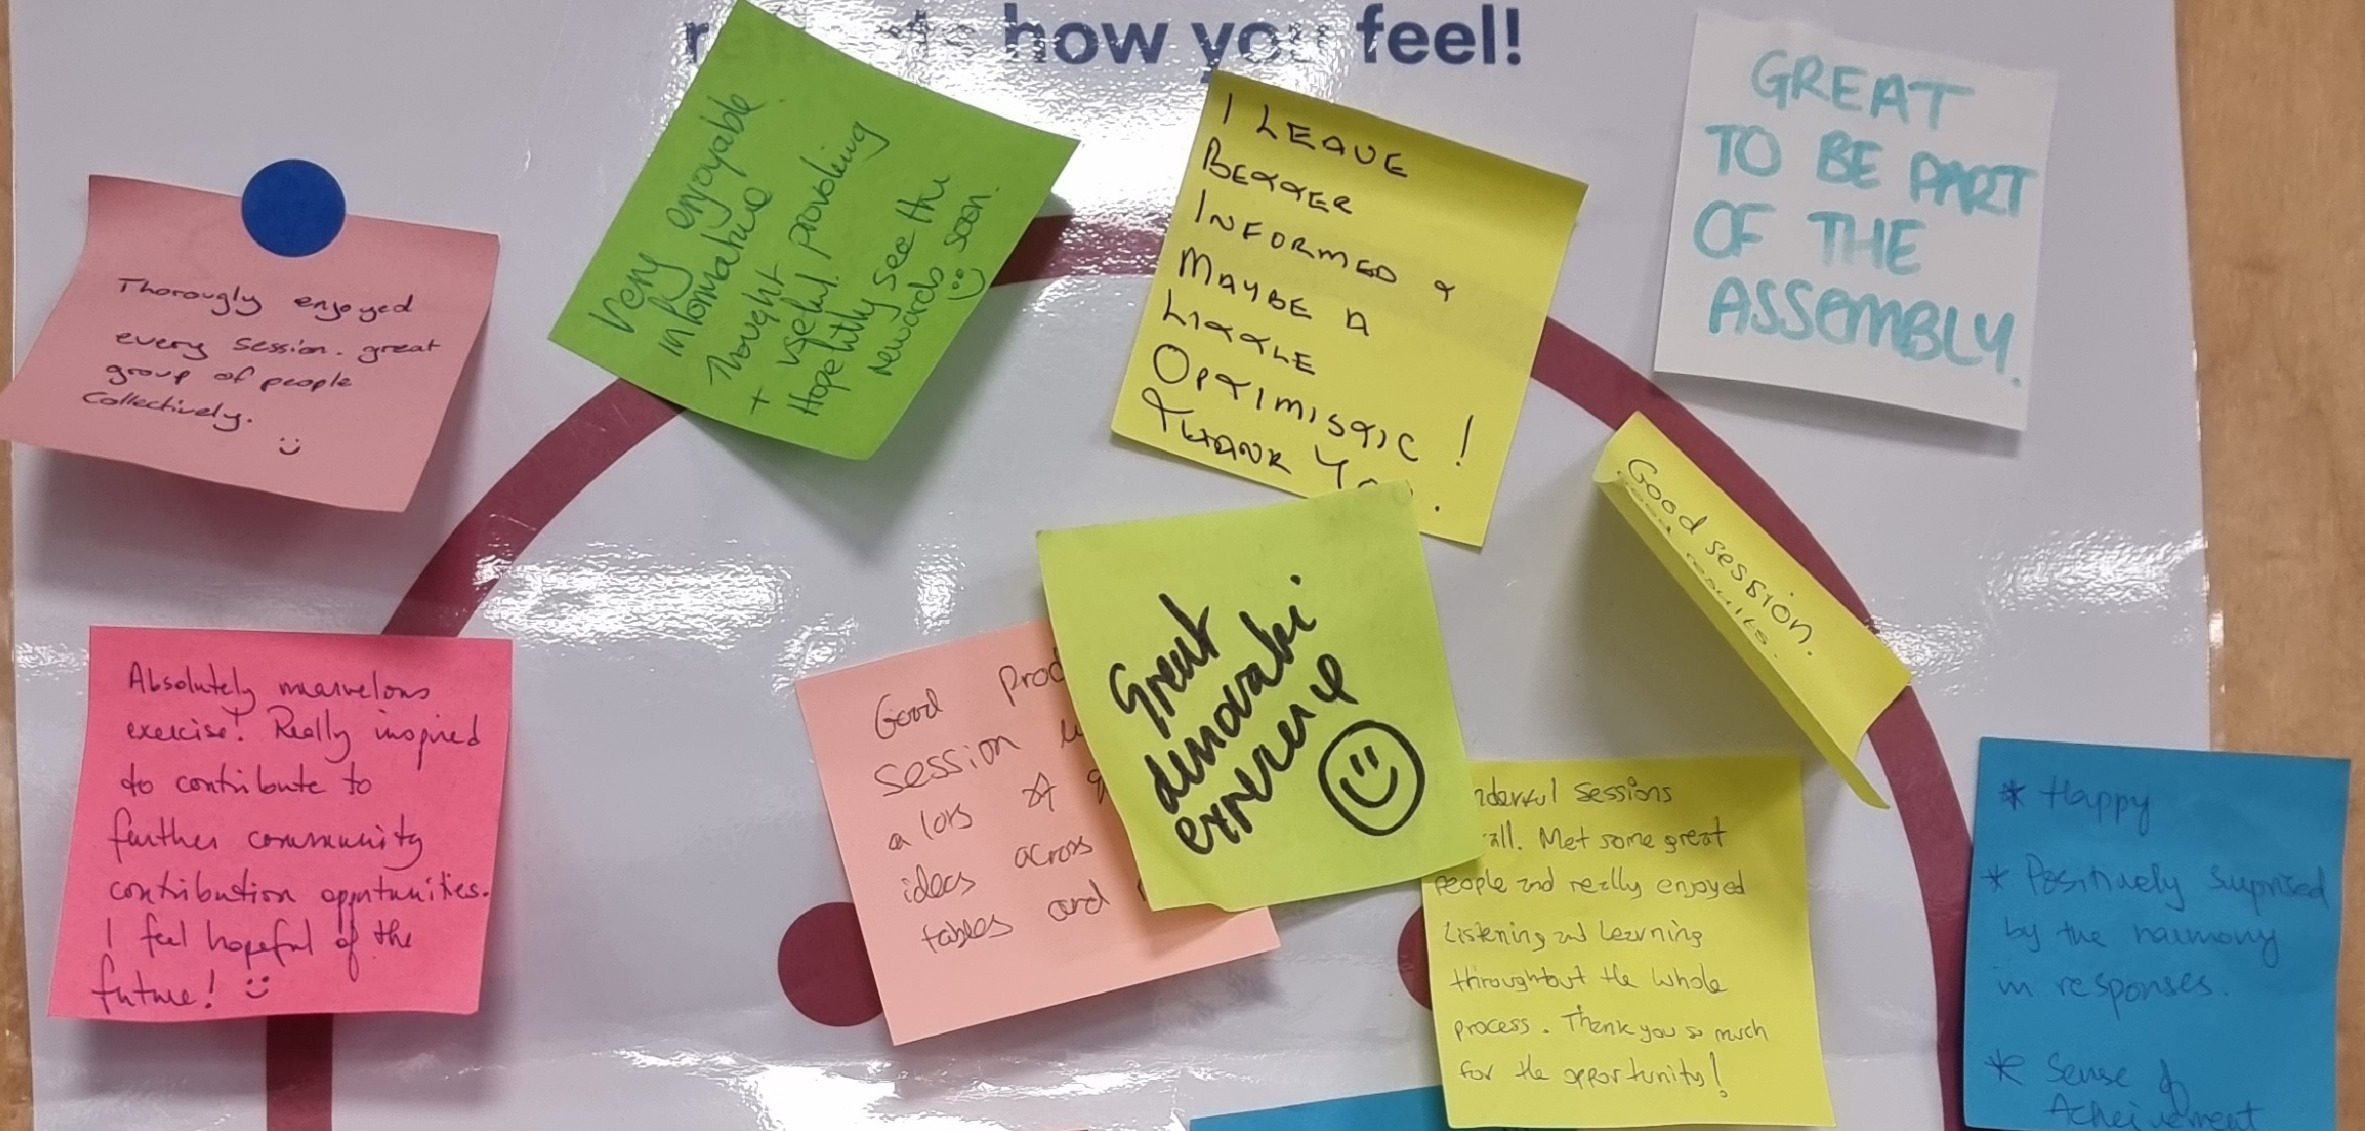 how you feel!
Thorougly enjoyed
every session. great
group of people
Collectively.
Very enjoyable
informative
thought provoking
+ useful.
Hopefully see the
rewards soon.
I LEAVE
BETTER
INFORMED &
MAYBE A
LITTLE
OPTIMISTIC !
THANK
GREAT
TO BE PART
OF THE
ASSEMBLY.
Good session.
Good results.
Absolutely marvelous
exercise! Really inspired
to contribute to
further community
contribution opportunities.
I feel hopeful of the
future!
Good
session
a lots of
ideas across
tables and
Great
experience
sessions
Met some great
people and really enjoyed
Listening and Learning
throughout the whole
process. Thank you so much
for the opportunity!
* Happy
* Positively surprised
by the harmony
in responses.
* Sense of
Acheivement